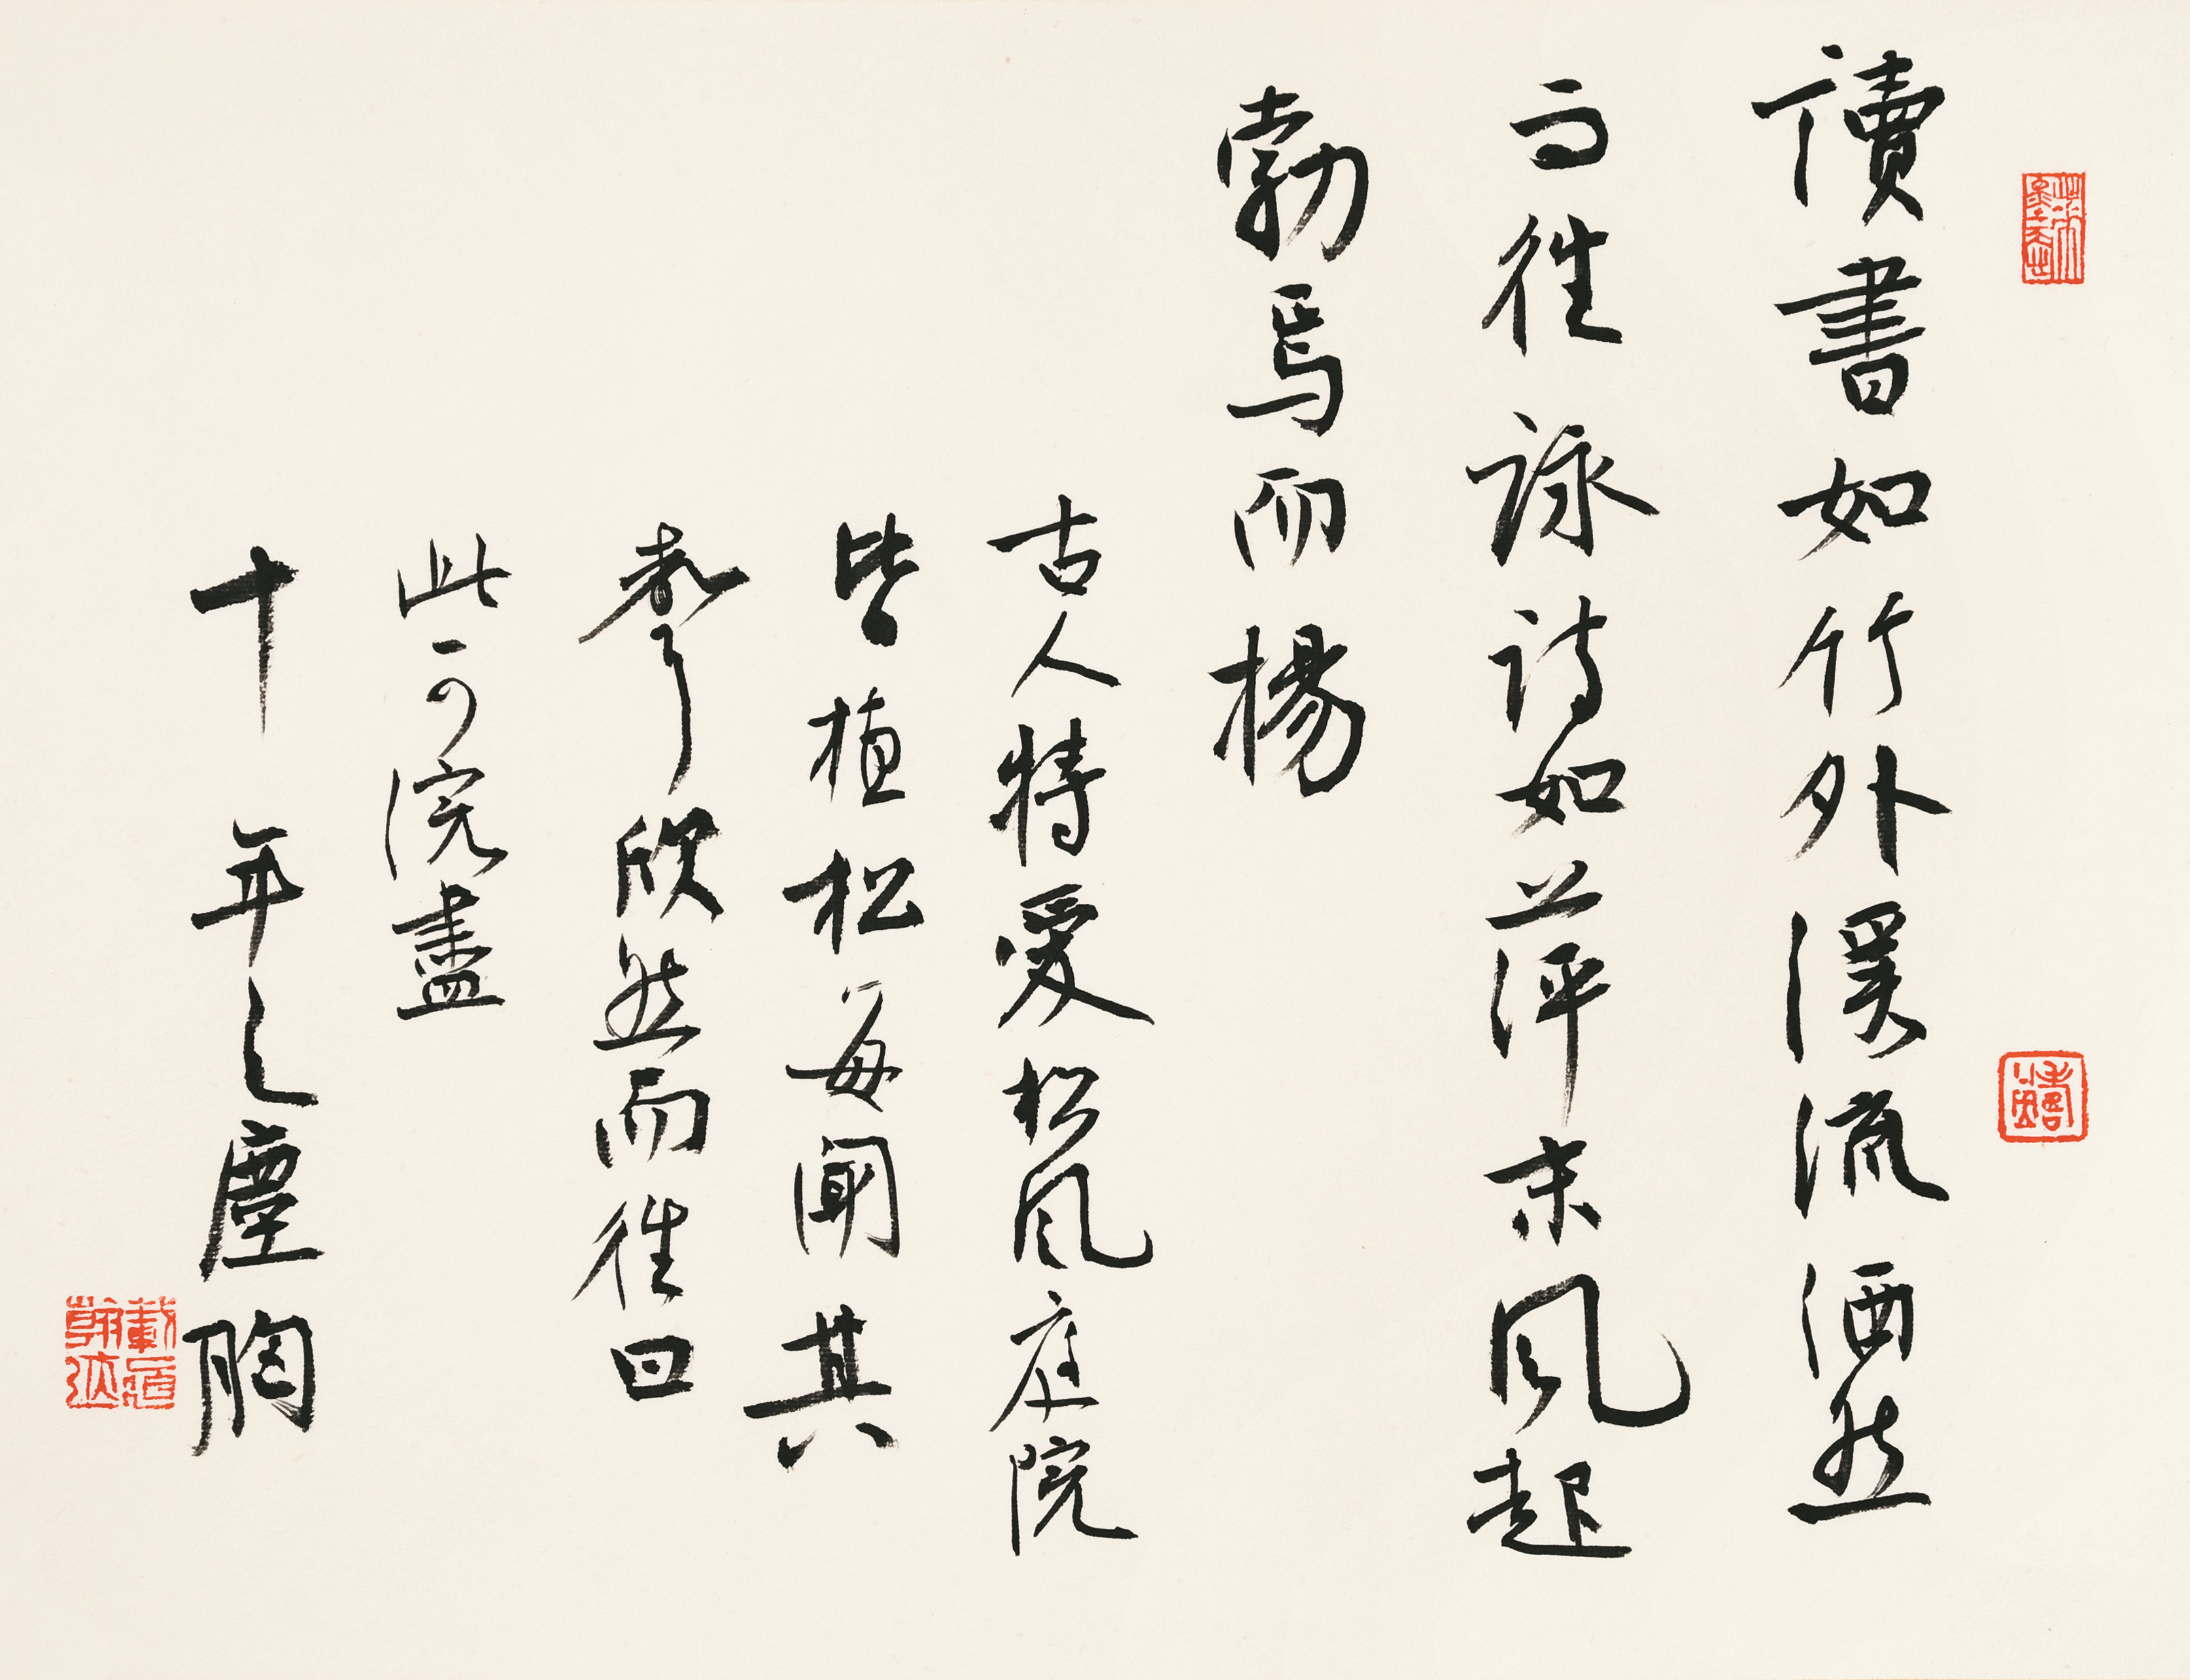 讀書如竹外溪流洒然
而往詠詩如萍末風起
勃焉而揚
古人特愛松風庭院
皆植松每聞其
聲欣然而往曰
此可浣盡
十年之塵胸